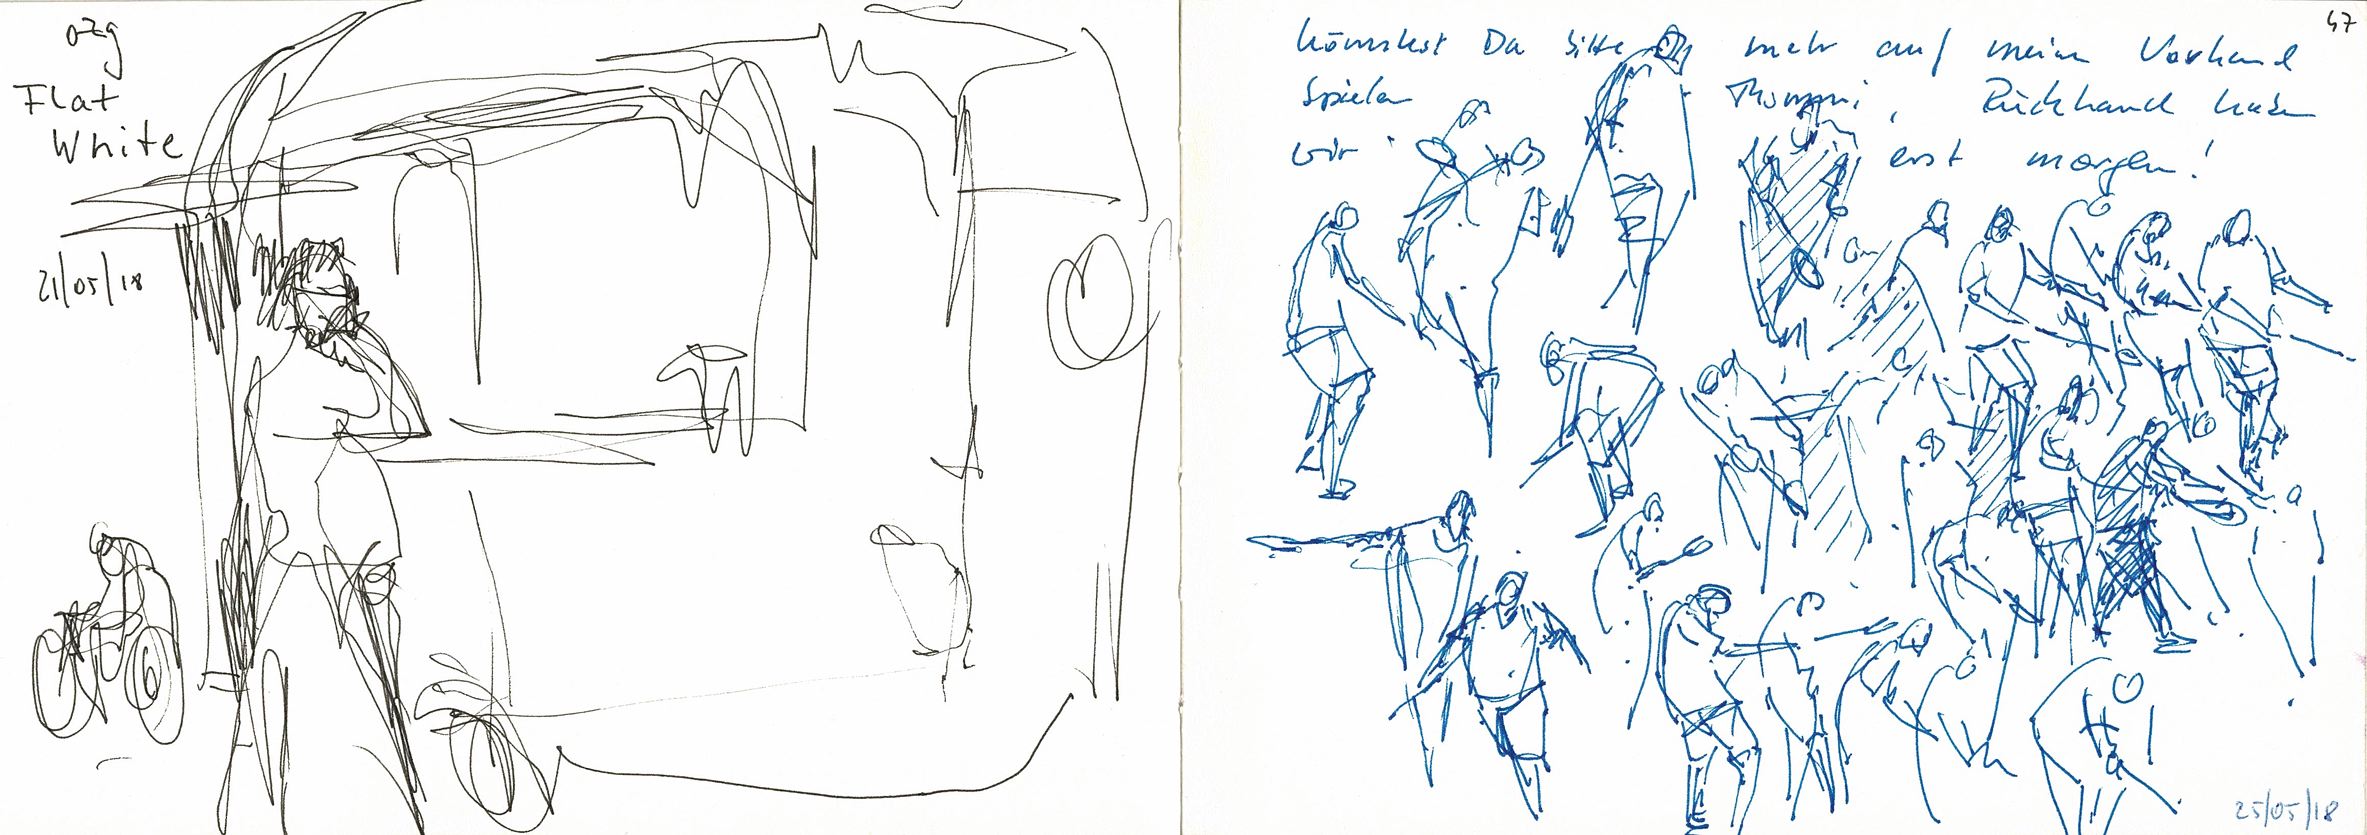 ozg
Flat
White
21/05/18
47
könntest Du bitte mehr auf meine Vorhand
spielen Thommi, Rückhand haben
wir erst morgen!
25/05/18